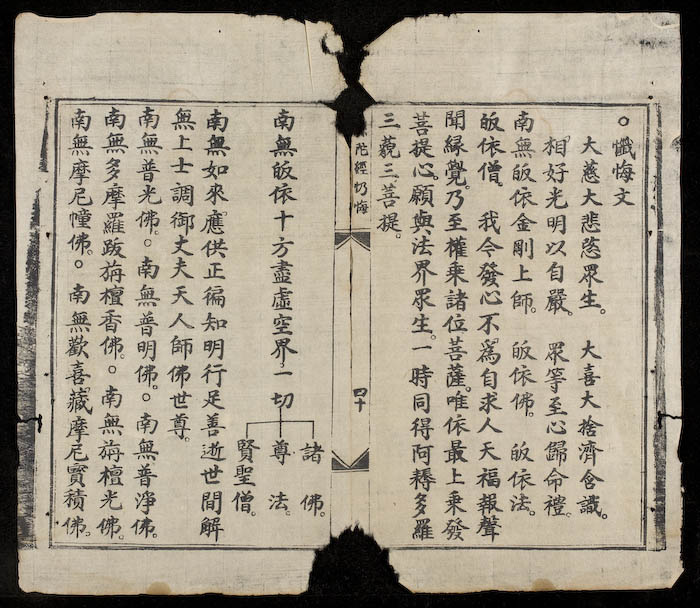 ○懺悔文
大慈大悲愍眾生。　大喜大捨濟含識。
相好光明以自嚴。　眾等至心歸命禮。
南無皈依金剛上師。　皈依佛。　皈依法。
皈依僧。　我今發心。不為自求人天福報聲
聞緣覺。乃至權乘諸位菩薩。唯依最上乘發
菩提心願與法界眾生。一時同得阿耨多羅
三藐三菩提。
陀經 悔
四十
南無皈依十方盡虛空界一切
諸佛。
尊法。
賢聖僧。
南無如來。應供正徧知明行足善逝世間解
無上士調御丈夫天人師佛世尊。
南無普光佛。○南無普明佛。○南無普淨佛。
南無多摩羅跋旃檀香佛。○南無旃檀光佛。
南無摩尼幢佛。○南無歡喜藏摩尼寶積佛。